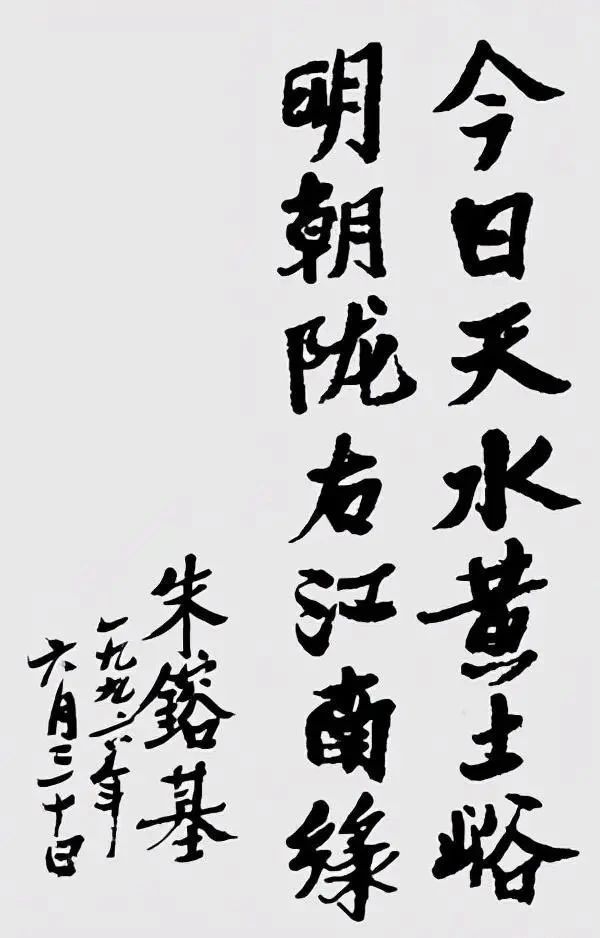 今日天水黄土峪
明朝陇右江南綠
朱鎔基
一九九六年
六月三十日